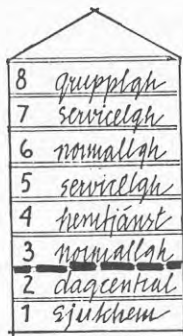 8 grupplgh
7 servicelgh
6 normallgh
5 servicelgh
4 hemtjänst
3 normallgh
2 dagcentral
1 sjukhem